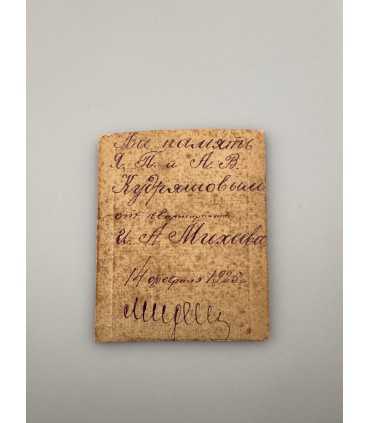 На память
Я. П. и А. В.
Кудряшовым
от
И А Михеева
14 февраля 1925 г.